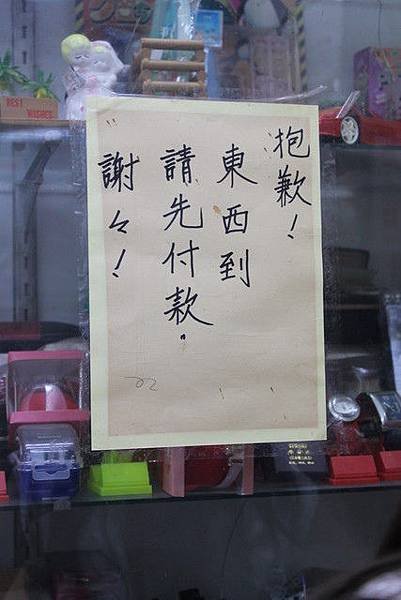 抱歉！
東西到
請先付款.
謝々！
BEST
WISHES